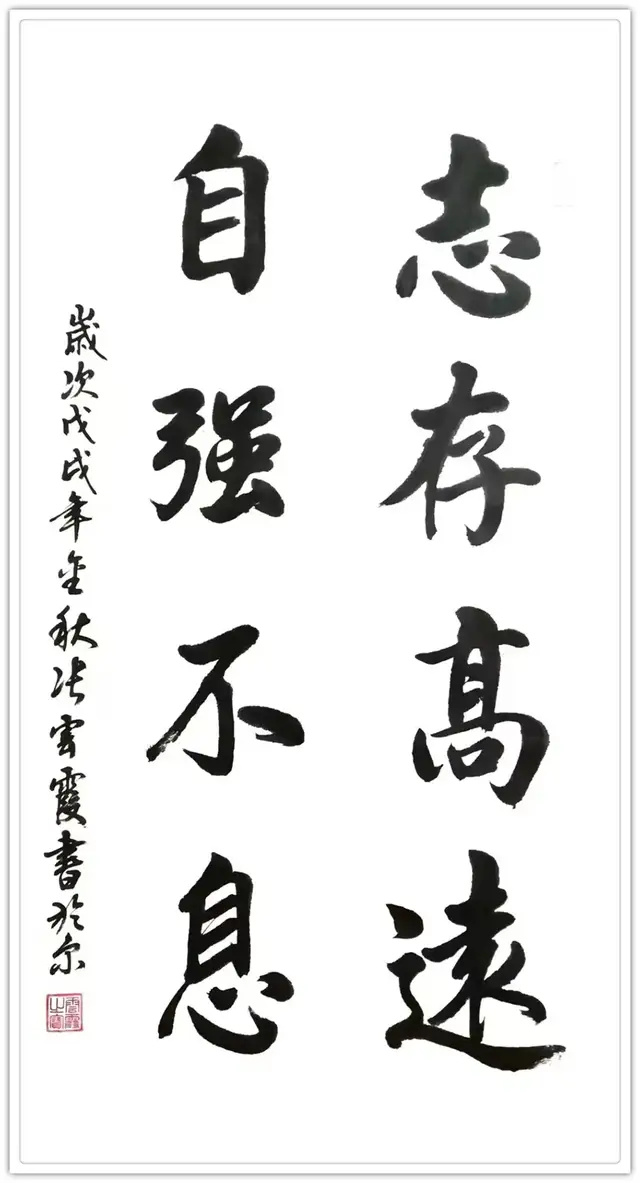 志存高遠
自强不息
歲次戊戌年金秋张雲霞書於京